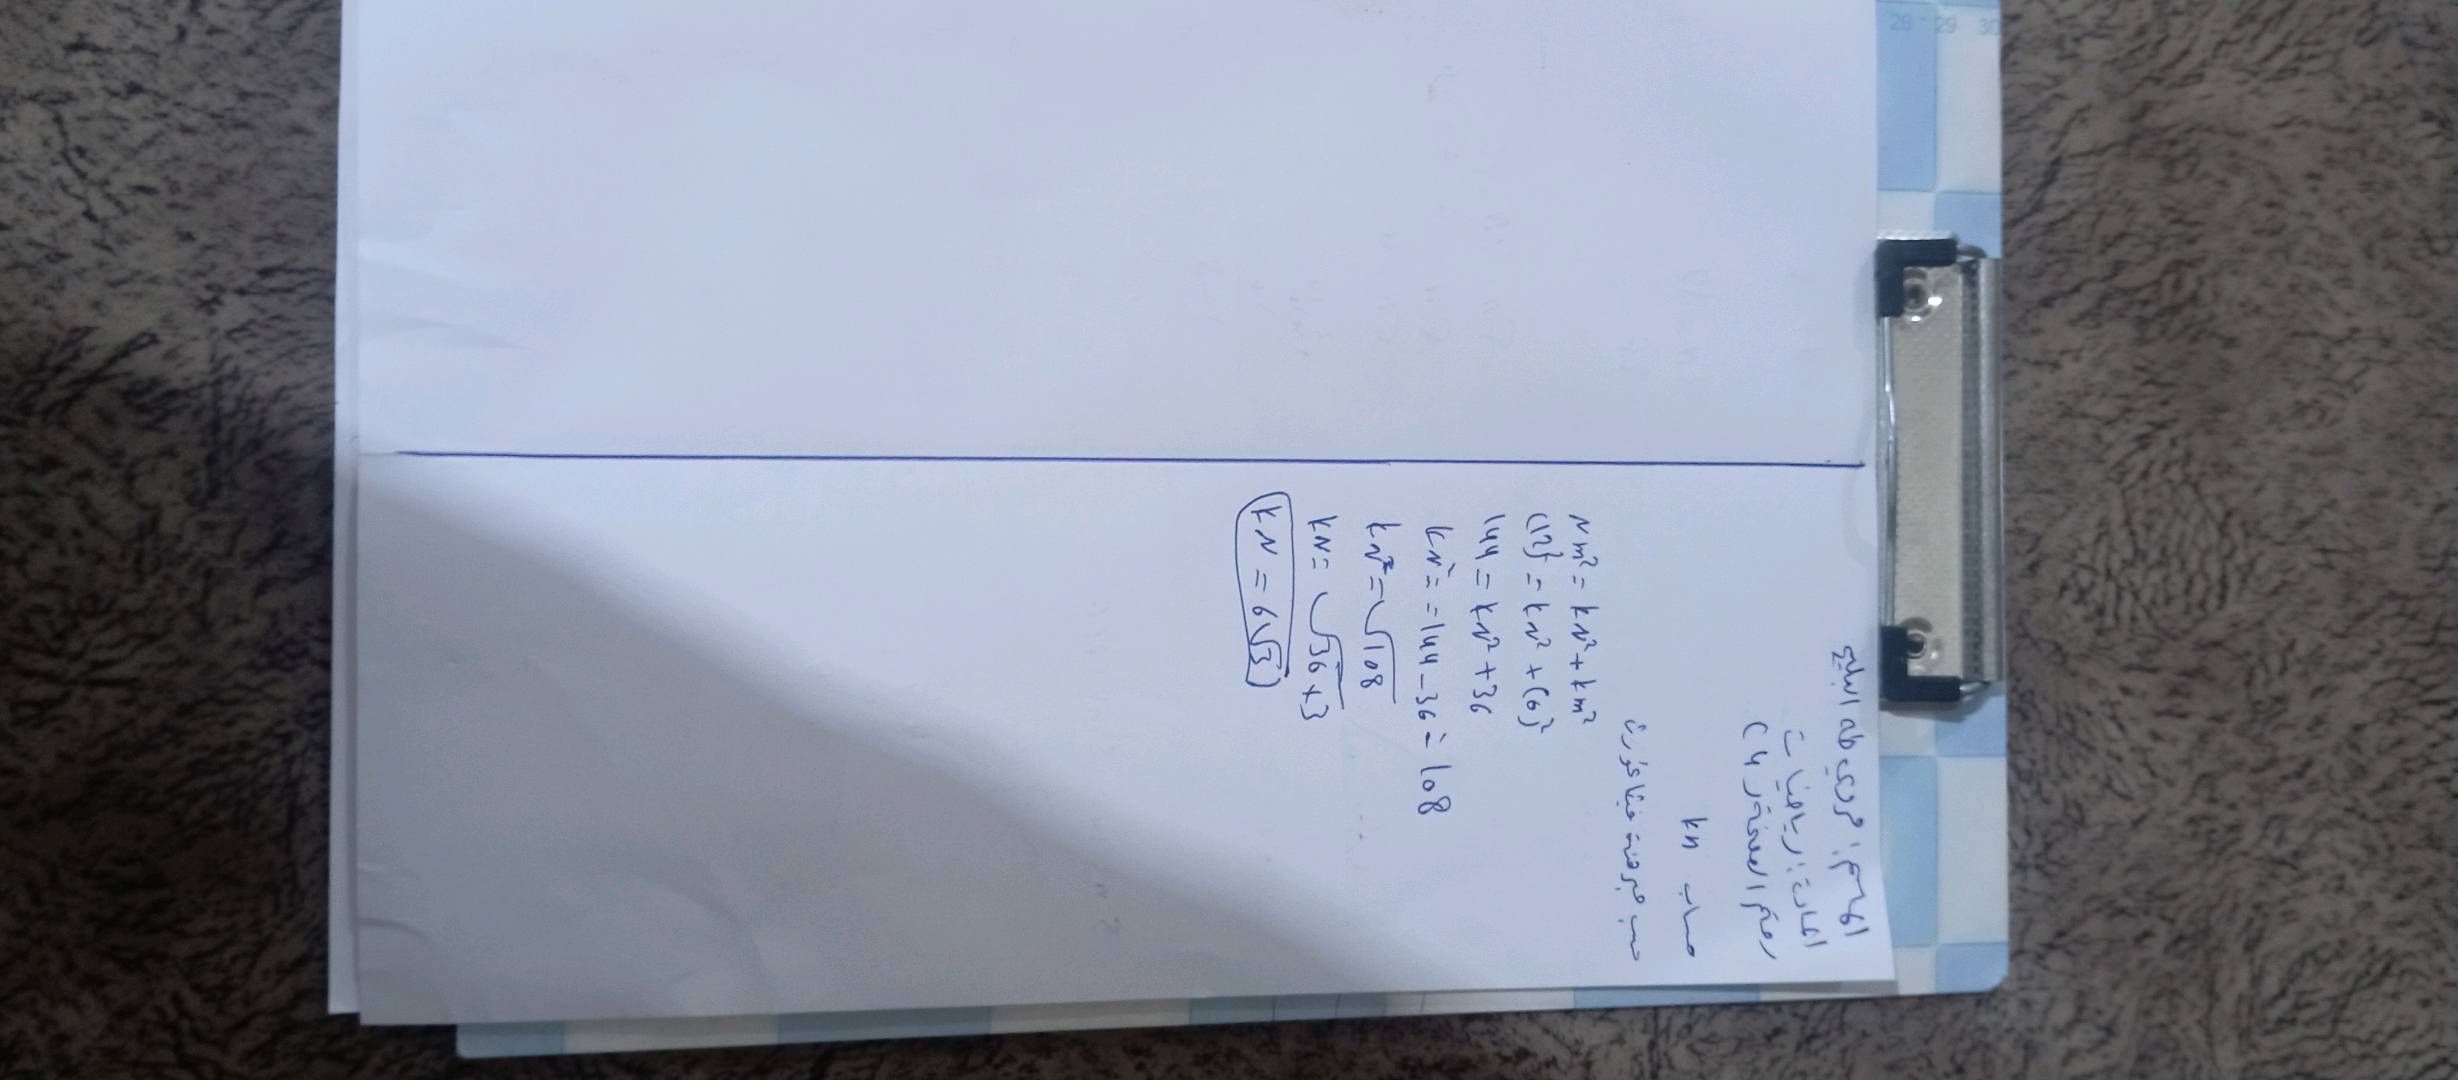 الاسم: فردي طه البلح
المادة: رياضيات
رقم الصفحة ( 4 )
حساب kn
حسب مبرهنة فيثاغورث
Nm² = kN² + km²
(12)² = kN² + (6)²
144 = kN² + 36
kN² = 144 - 36 = 108
kN² = √108
kN = √36 × 3
kN = 6√3
28 29 30